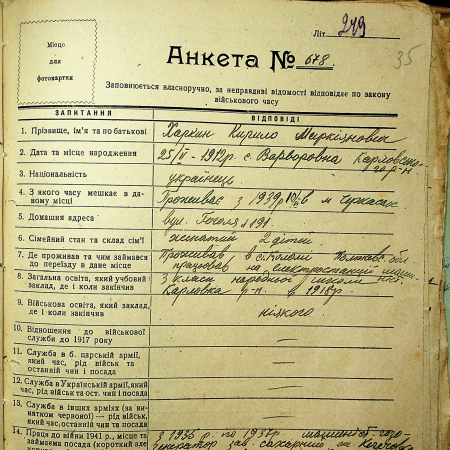 Літ. 249
35
Місце
для
фотокартки
Анкета № 678
Заповнюється власноручно, за неправдиві відомості відповідає по закону
військового часу
ЗАПИТАННЯ
ВІДПОВІДІ
1. Прізвище, ім'я та по батькові
Харкин Кирило Маркіянович
2. Дата та місце народження
25/V - 1912 с. Варворовна Карловського
р-н
3. Національність
українець
4. З якого часу мешкає в да-
ному місці
Проживає з 1939р 10/ в м Черкасах
5. Домашня адреса
вул. Гоголя 191
6. Сімейний стан та склад сім'ї
женатий 2 дітей
7. Де проживав та чим займався
до переїзду в дане місце
Проживав в Полтавс обл
працовав на електростанції
8. Загальна освіта, який учбовий
заклад, де і коли закінчив
3 класи народної школи
Карловка р-н. в 1918р.
9. Військова освіта, який заклад,
де і коли закінчив
ніякого
10. Відношення до військової
служби до 1917 року
11. Служба в б. царській армії,
який час, рід військ та
останній чин і посада
12. Служба в Українській армії, який
час, рід військ та ост. чин і посада
13. Служба в інших арміях (за ви-
нятком червоної) — рід військ,
який час, останній чин та посада
14. Праця до війни 1941 р., місце та
займана посада (короткий але
з 1935 р. по 1937р.
зав. сахарний